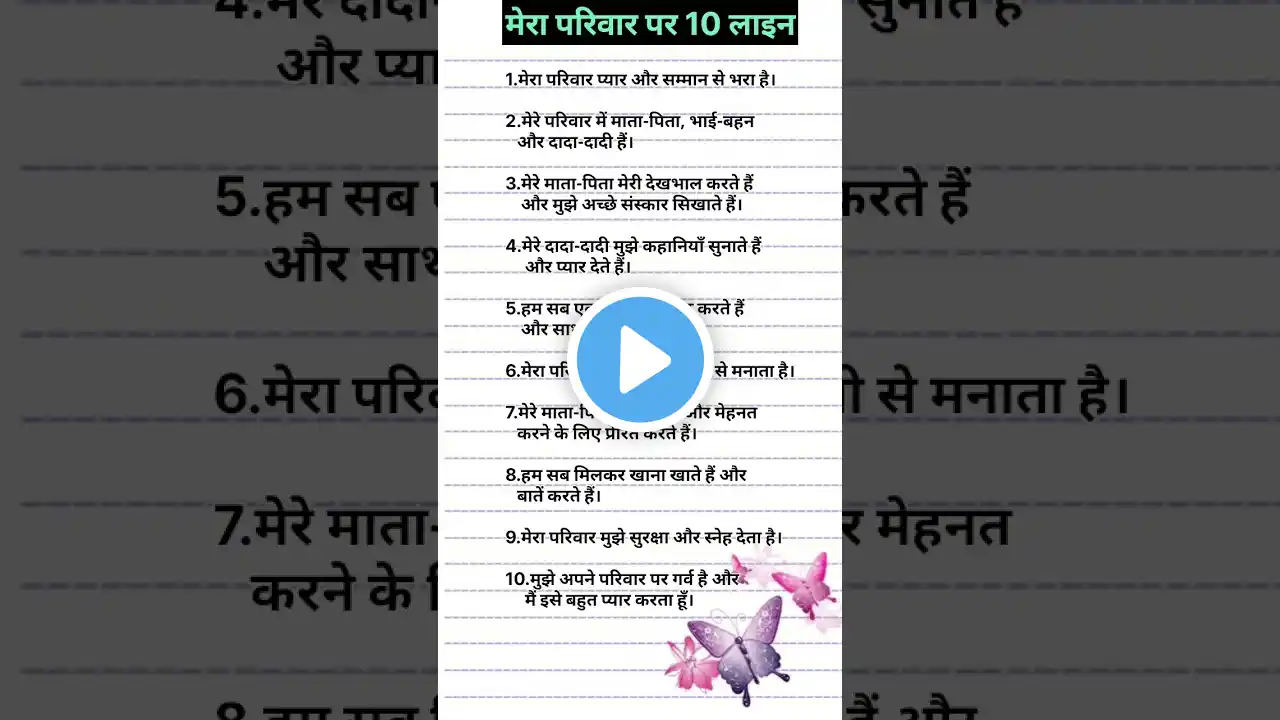 मेरा परिवार पर 10 लाइन
1.मेरा परिवार प्यार और सम्मान से भरा है।
2.मेरे परिवार में माता-पिता, भाई-बहन
और दादा-दादी हैं।
3.मेरे माता-पिता मेरी देखभाल करते हैं
और मुझे अच्छे संस्कार सिखाते हैं।
4.मेरे दादा-दादी मुझे कहानियाँ सुनाते हैं
और प्यार देते हैं।
5.हम सब करते हैं
और
6.मेरा से मनाता है।
7.मेरे और मेहनत
करने के लिए प्रेरित करते हैं।
8.हम सब मिलकर खाना खाते हैं और
बातें करते हैं।
9.मेरा परिवार मुझे सुरक्षा और स्नेह देता है।
10.मुझे अपने परिवार पर गर्व है और
मैं इसे बहुत प्यार करता हूँ।